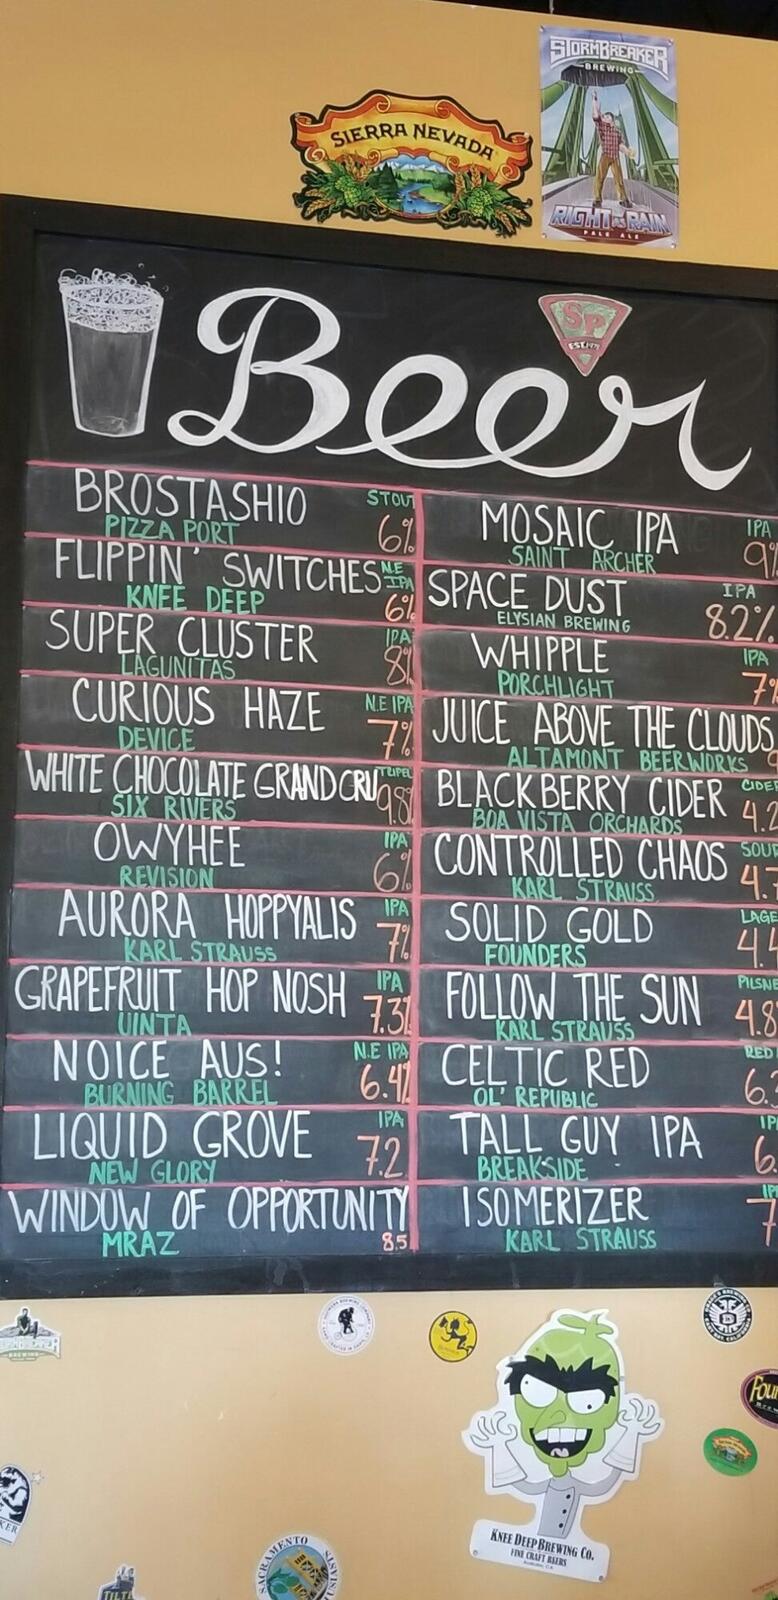 STORMBREAKER
BREWING
SIERRA NEVADA
RIGHT AS RAIN
PALE ALE
Beer
SP
EST. 1979
BROSTASHIO STOUT
PIZZA PORT 6%
FLIPPIN' SWITCHES N.E IPA
KNEE DEEP 6%
SUPER CLUSTER IPA
LAGUNITAS 8%
CURIOUS HAZE N.E IPA
DEVICE 7%
WHITE CHOCOLATE GRAND CRU TRIPEL
SIX RIVERS 9.8%
OWYHEE IPA
REVISION 6%
AURORA HOPPYALIS IPA
KARL STRAUSS 7%
GRAPEFRUIT HOP NOSH IPA
UINTA 7.3%
NOICE AUS! N.E IPA
BURNING BARREL 6.4%
LIQUID GROVE IPA
NEW GLORY 7.2
WINDOW OF OPPORTUNITY
MRAZ 8.5
MOSAIC IPA IPA
SAINT ARCHER 9%
SPACE DUST IPA
ELYSIAN BREWING 8.2%
WHIPPLE IPA
PORCHLIGHT 7%
JUICE ABOVE THE CLOUDS
ALTAMONT BEERWORKS
BLACKBERRY CIDER CIDER
BOA VISTA ORCHARDS 4.2
CONTROLLED CHAOS SOUR
KARL STRAUSS 4.7
SOLID GOLD LAGE
FOUNDERS 4.4
FOLLOW THE SUN PILSNE
KARL STRAUSS 4.8
CELTIC RED RED
OL' REPUBLIC 6.3
TALL GUY IPA IP
BREAKSIDE 6.
ISOMERIZER IP
KARL STRAUSS 7
Fou
KNEE DEEP BREWING CO.
FINE CRAFT BEERS
AUBURN, CA
SACRAMENTO
TILT